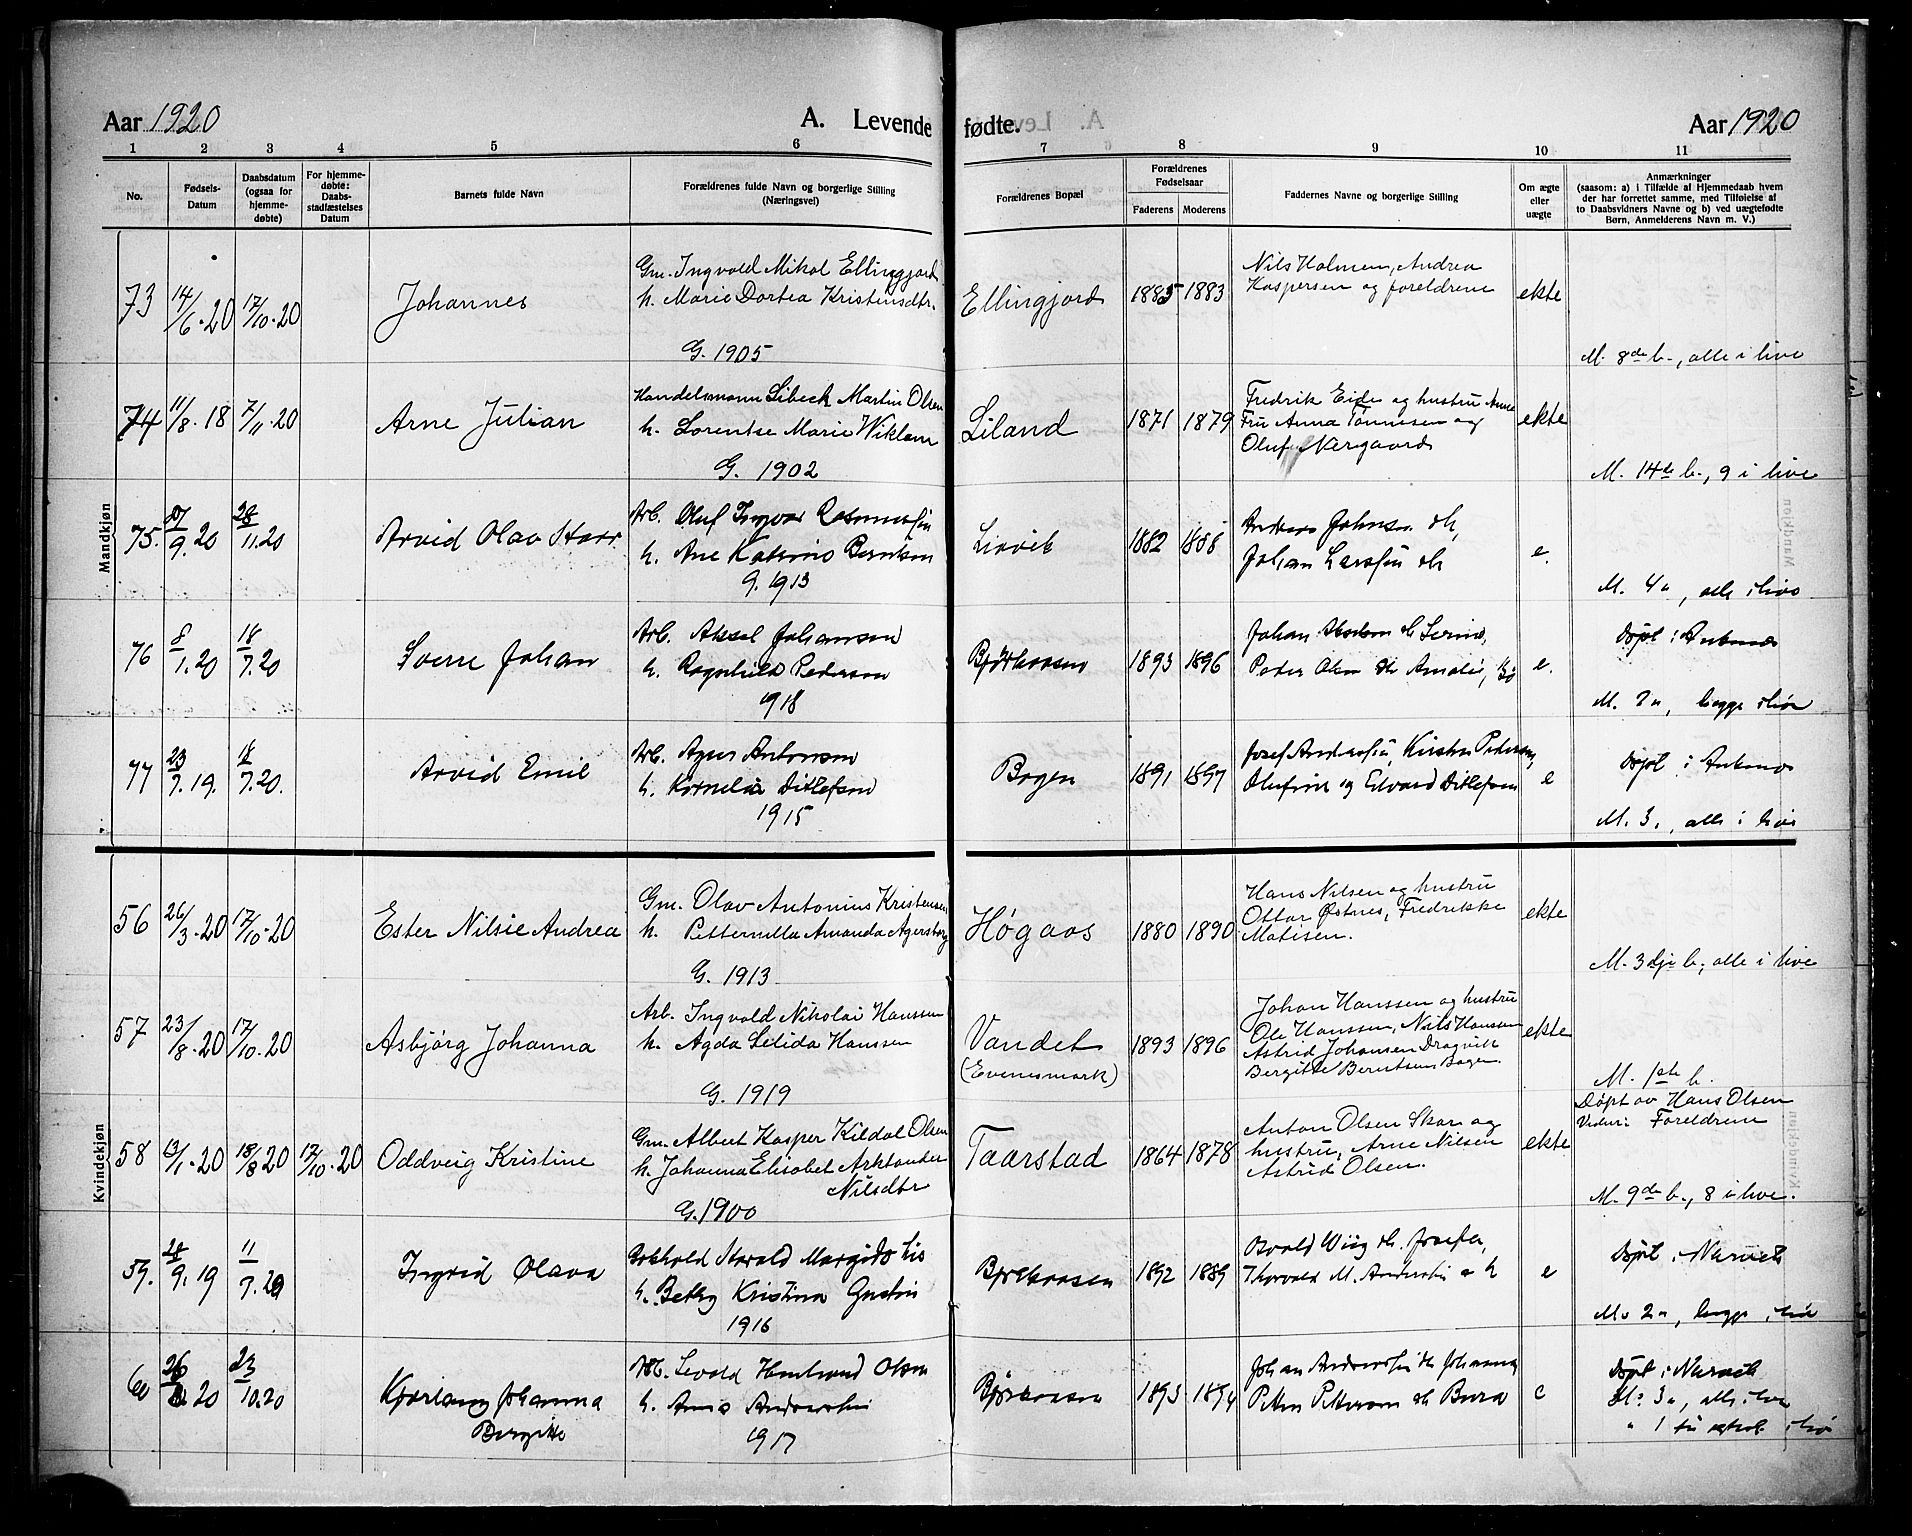 Aar 1920
A. Levende fødte.
Aar 1920
1 2 3 4 5 6 7 8 9 10 11
No.
Fødsels-
Datum
Daabsdatum
(ogsaa for
hjemme-
døbte)
For hjemme-
døbte:
Daabs-
stadfæstelses
Datum
Barnets fulde Navn
Forældrenes fulde Navn og borgerlige Stilling
(Næringsvei)
Forældrenes Bopæl
Forældrenes
Fødselsaar
Faderens Moderens
Faddernes Navne og borgerlige Stilling
Om ægte
eller
uægte
Anmærkninger
(saasom: a) i Tilfælde af Hjemmedaab hvem
der har forrettet samme, med Tilføielse af
to Daabsvidners Navne og b) ved uægtefødte
Børn, Anmelderens Navn m. V.)
Mandkjøn
73 14/6.20 17/10.20 Johannes
Gm. Ingvald Mikal Ellingjord
h. Marie Dortea Kristensdtr.
G. 1905
Ellingjord 1885 1883
Nils Holmen, Andrea
Kaspersen og foreldrene
ekte
M. 8de b., alle i live
74 11/8.18 7/11.20 Arne Julian
Handelsmann Libeck Martin Olsen
h. Lorentse Marie Wiklem
G. 1902
Liland 1871 1879
Fredrik Eide og hustru Anne
Fru Anna Tönnesen og
Oluf Nergaard
ekte
M. 14de b., 9 i live
75. 9.20 28/11.20 Arvid Olav Starr
Arb. Oluf Ingvar Rasmussen
h. Ane Katrine Berntsen
G. 1913
Liavik 1882 1888
Andreas Johnsen
Johan Larssen
e.
M. 4", alle i live
76 8/1.20 18/7.20 Sverre Johan
Arb. Aksel Johansen
h. Ragnhild Pedersen
1918
Bjørkaasen 1893 1896
Johan
Peder Olsen Amalie, Bø
e.
Døpt i Ankenes
M. 2", begge i live
77 23/7.19. 18/7.20. Arvid Emil
Arb. Agnes Antonsen
h. Kornelia Ditlefsen
1915
Bogen 1891 1897
Josef Anderssen, Kirsten Pedersen,
Olufine og Edvard Ditlefsen
e
Døpt i Ankenes
M. 3., alle i live
Kvindekjøn
56 26/3.20 17/10.20 Ester Nilsie Andrea
Gm. Olav Antonius Kristensen
h. Petternella Amanda Agersborg
G. 1913
Høgaas 1880 1890
Hans Nilsen og hustru
Ottar Østnes, Fredrikke
Matisen.
ekte
M. 3dje b., alle i live
57 23/8.20 17/10.20 Asbjørg Johanna
Arb. Ingvald Nikolai Hanssen
h. Agda Lilida Hanssen
G. 1919
Vandet
(Evenesmark)
1893 1896
Johan Hanssen og hustru
Ole Hanssen, Nils Hanssen
Astrid Johansen Dragvik
Bergitte Berntsen Bogen.
ekte
M. 1ste b.
58 13/1.20 18/8.20 17/10.20 Oddveig Kristine
Gm. Albert Kasper Kildal Olsen
h. Johanna Elisabet Arktander
Nilsdtr
G. 1900
Taarstad 1864 1878
Anton Olsen Skar og
hustru, Arne Nilsen
Astrid Olsen.
ekte
Døpt av Hans Olsen
Vidner: Foreldrene
M. 9de b., 8 i live.
59. 28/9.19 11/7.20 Ingrid Olava
Harald
h. Betzy Kristina
1916
Bjørkaasen 1892 1889
Josefa,
Thorvald M. Anderssen
e
Døpt i Narvik
M. 2", begge i live
60 20 23/10.20 Johanna
Bergitte
Arb. Olsen
h. Anna Anderssen
1917
Bjørkaasen 1893 1894
Johan Anderssen Johanna
Petter Pettersen
e
Døpt i Narvik
M: 3", alle i live